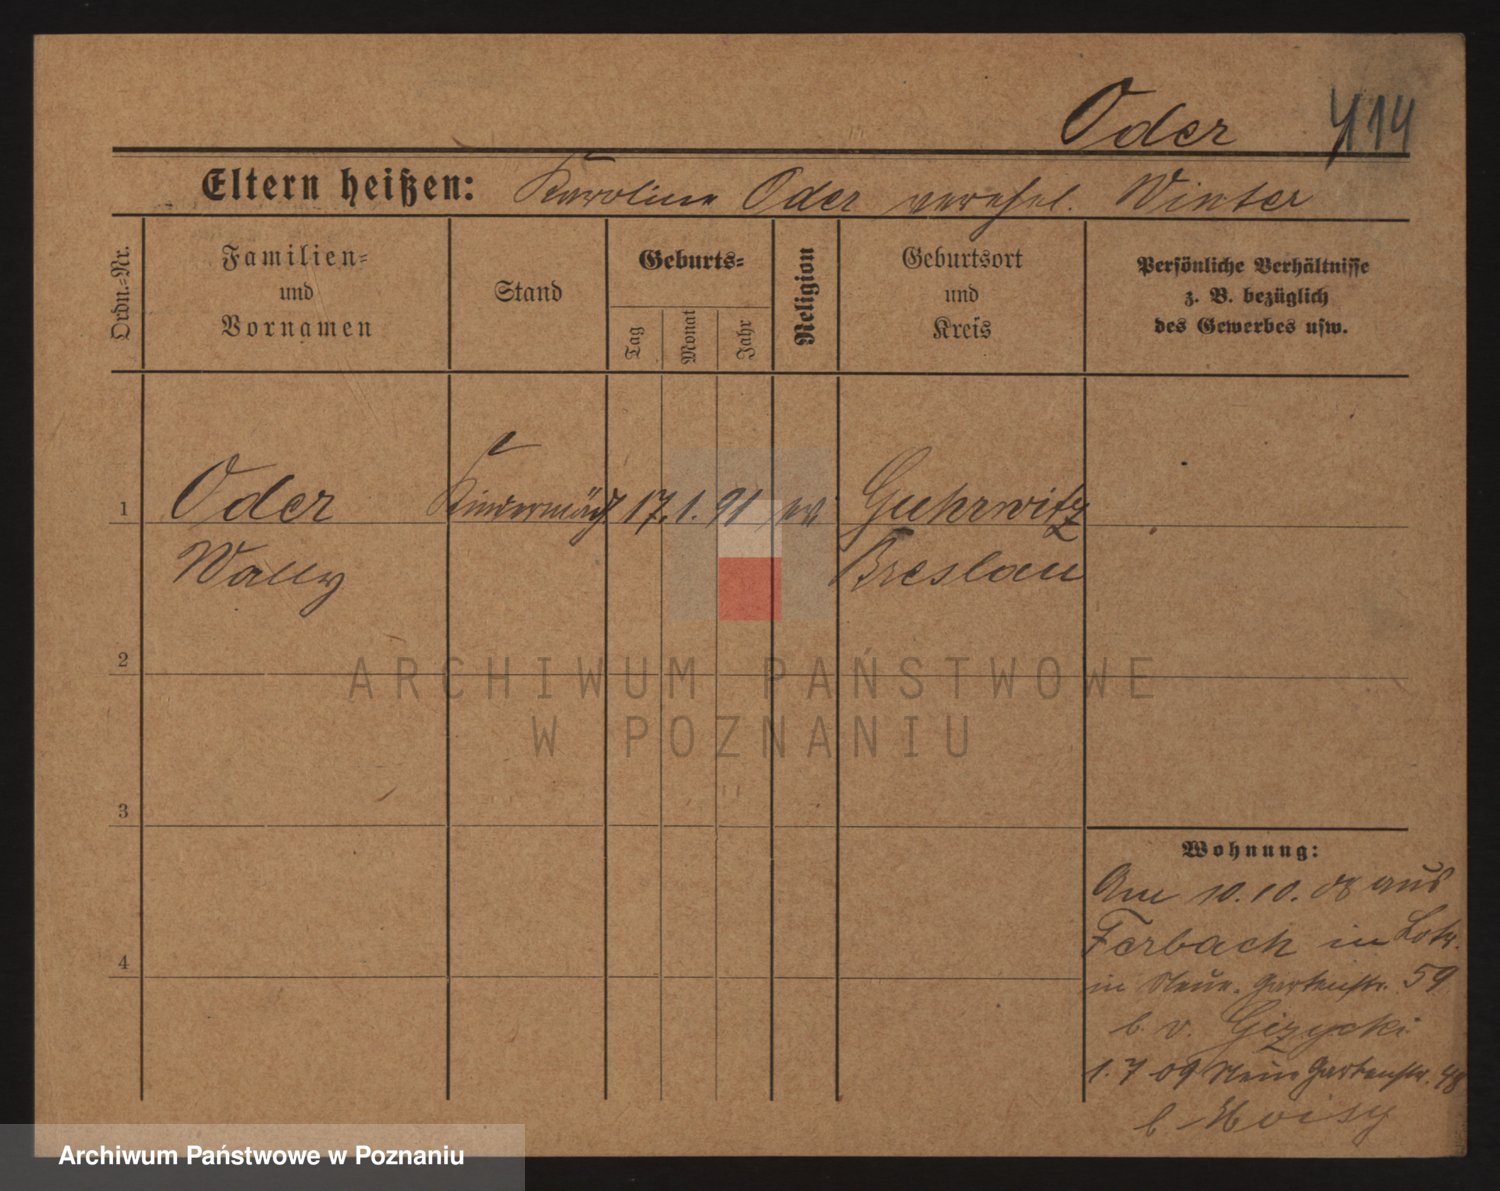 Oder 414
Eltern heißen: Karoline Oder verehel. Winter
Ordn.-Nr.
Familien-
und
Vornamen
Stand
Geburts-
Tag
Monat
Jahr
Religion
Geburtsort
und
Kreis
Persönliche Verhältnisse
z. B. bezüglich
des Gewerbes usw.
1 Oder Kindermäd 17. 1. 91 ev Guhrwitz
Wally Breslau
2
3
4
Wohnung:
Am 10.10.08 aus
Forbach in Lothr.
in Neue. Gartenstr. 59
b. v. Gizycki
1. 7 09 Neue Gartenstr. 48
b
ARCHIWUM PAŃSTWOWE
W POZNANIU
Archiwum Państwowe w Poznaniu